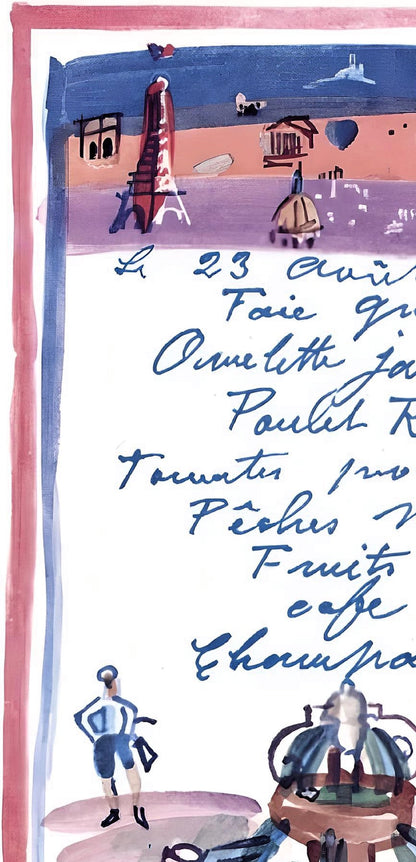 Le 23 Août
Foie gr
Omelette ja
Poulet R
Tomates pro
Pêches
Fruits
cafe
Champa